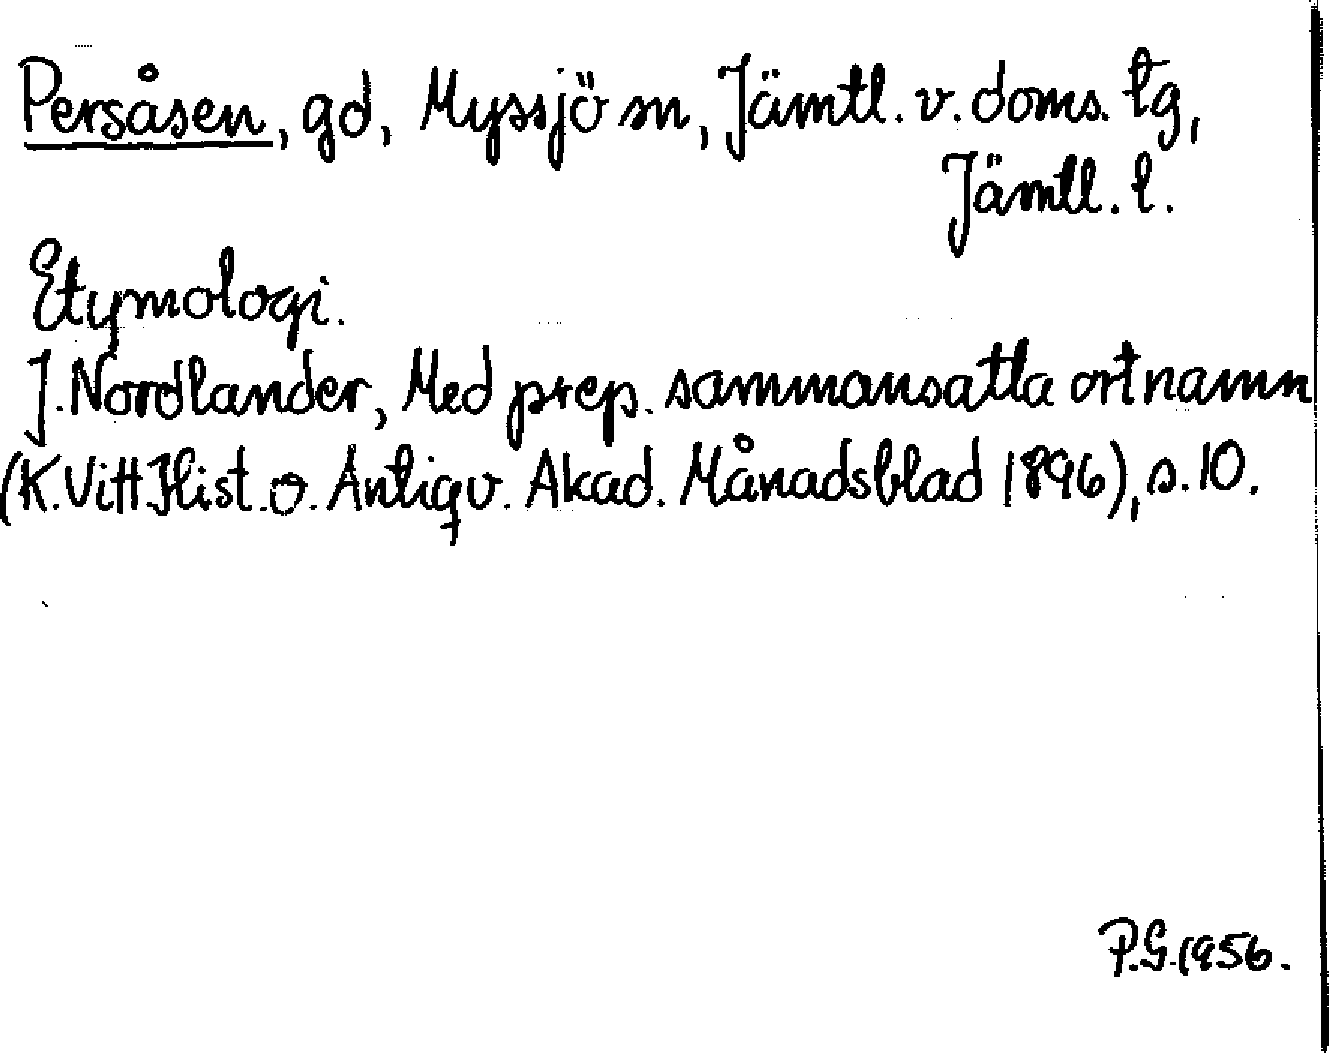 Persåsen, gd, Myssjö sn, Jämtl. v. doms. tg,
Jämtl. l.
Etymologi.
J. Nordlander, Med prep. sammansatta ortnamn
(K. Vitt. Hist. o. Antiqv. Akad. Månadsblad 1896), s. 10.
P.G. 1956.